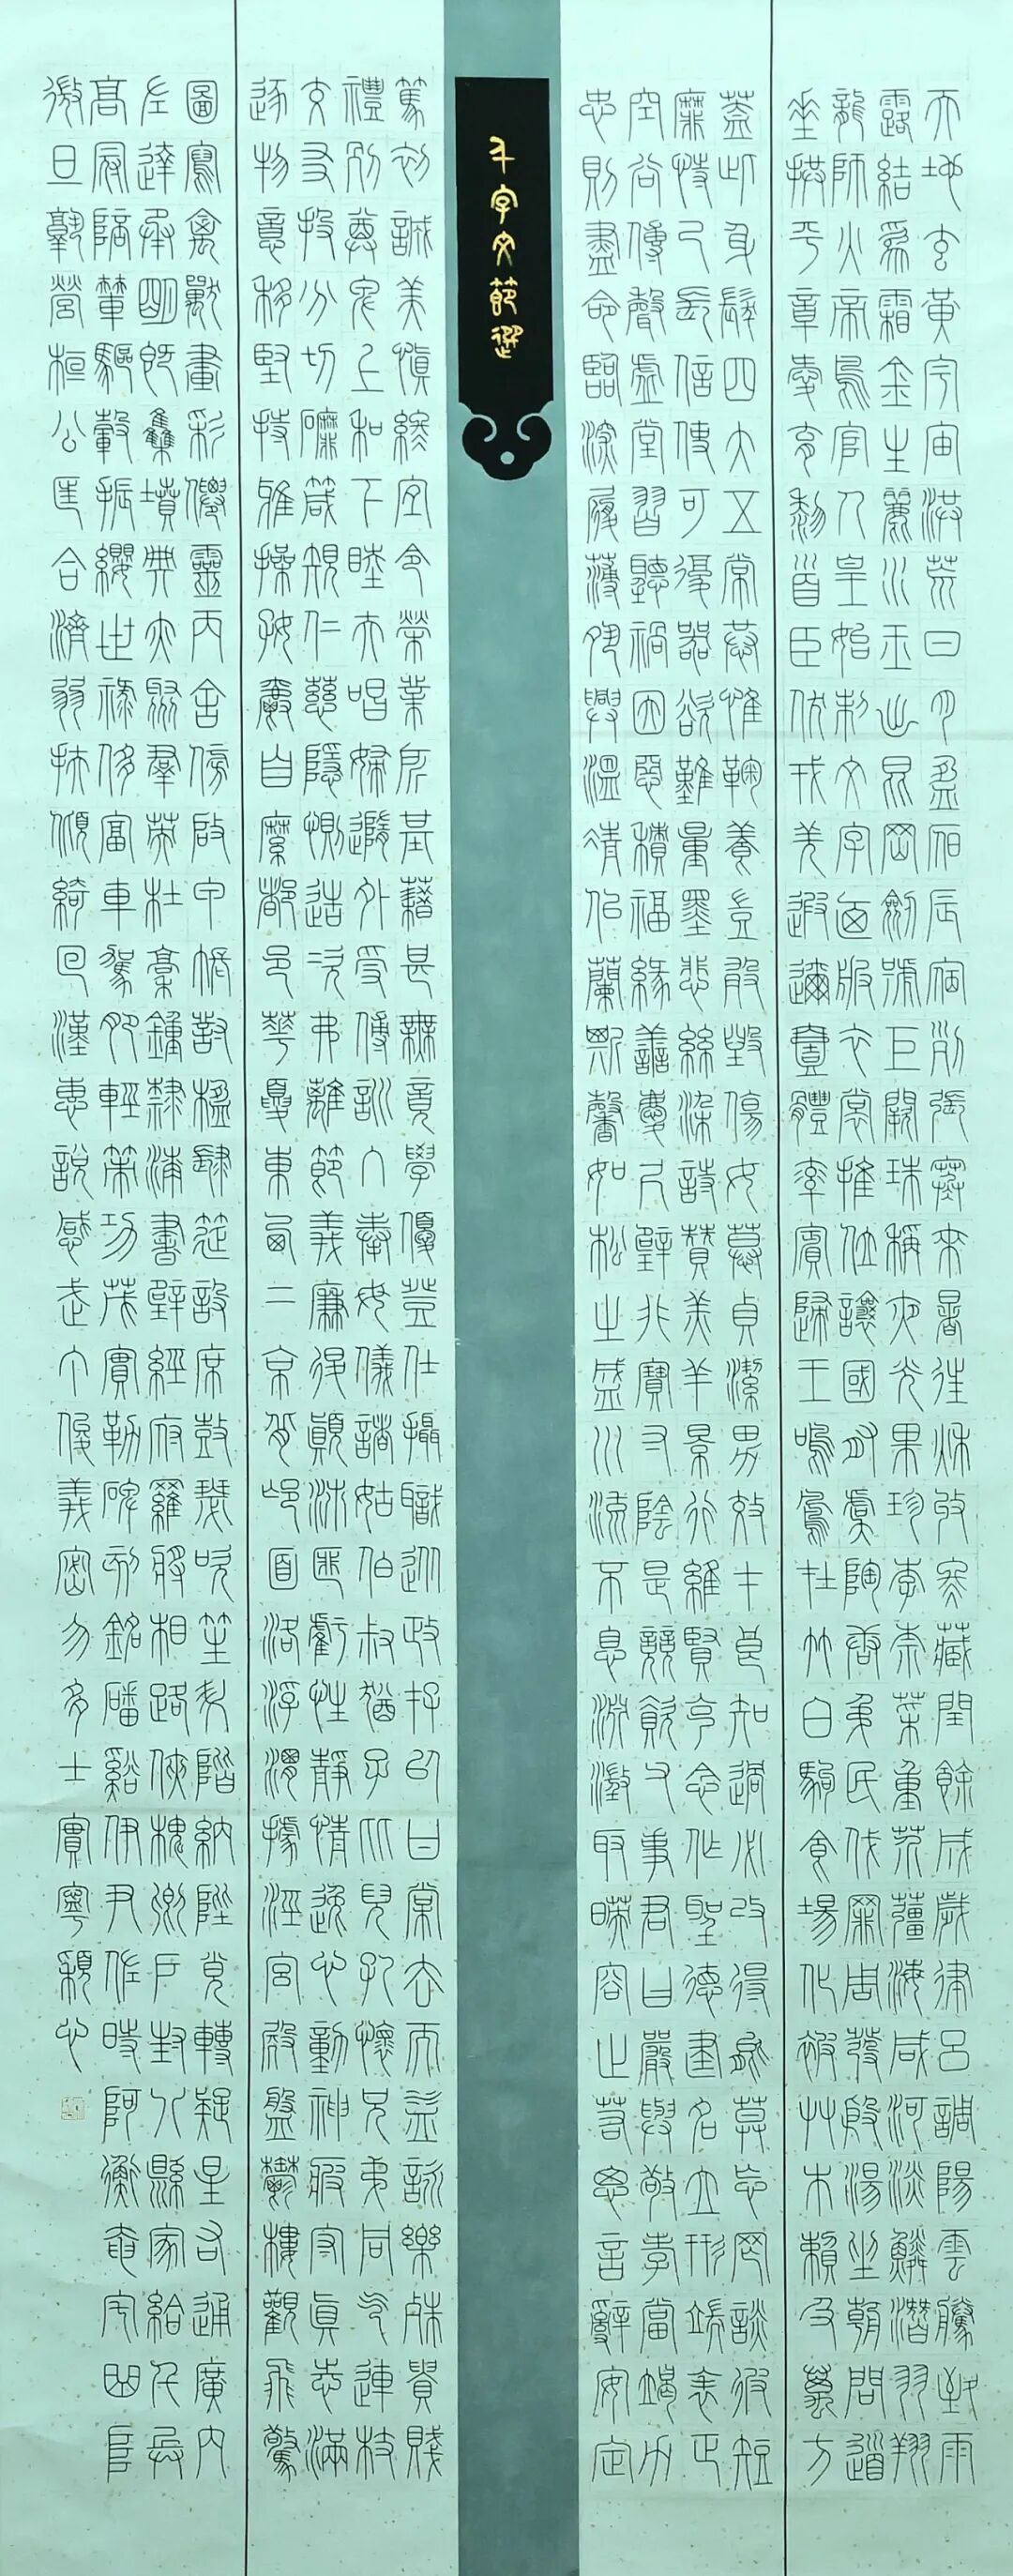 天地玄黃宇宙洪荒日月盈昃辰宿列張寒來暑往秋收冬藏閏餘成歲律呂調陽雲騰致雨
露結為霜金生麗水玉出崑岡劍號巨闕珠稱夜光果珍李柰菜重芥薑海鹹河淡鱗潛羽翔
龍師火帝鳥官人皇始制文字乃服衣裳推位讓國有虞陶唐弔民伐罪周發殷湯坐朝問道
垂拱平章愛育黎首臣伏戎羌遐邇壹體率賓歸王鳴鳳在竹白駒食場化被草木賴及萬方
蓋此身髮四大五常恭惟鞠養豈敢毀傷女慕貞潔男效才良知過必改得能莫忘罔談彼短
靡恃己長信使可覆器欲難量墨悲絲染詩贊羔羊景行維賢克念作聖德建名立形端表正
空谷傳聲虛堂習聽禍因惡積福緣善慶尺璧非寶寸陰是競資父事君曰嚴與敬孝當竭力
忠則盡命臨深履薄夙興溫凊似蘭斯馨如松之盛川流不息淵澄取映容止若思言辭安定
千字文節選
篤初誠美慎終宜令榮業所基藉甚無竟學優登仕攝職從政存以甘棠去而益詠樂殊貴賤
禮別尊卑上和下睦夫唱婦隨外受傅訓入奉母儀諸姑伯叔猶子比兒孔懷兄弟同氣連枝
交友投分切磨箴規仁慈隱惻造次弗離節義廉退顛沛匪虧性靜情逸心動神疲守真志滿
逐物意移堅持雅操好爵自縻都邑華夏東西二京背邙面洛浮渭據涇宮殿盤鬱樓觀飛驚
圖寫禽獸畫彩僊靈丙舍傍啟甲帳對楹肆筵設席鼓瑟吹笙升階納陛弁轉疑星右通廣內
左達承明既集墳典亦聚群英杜稾鍾隸漆書壁經府羅將相路俠槐卿戶封八縣家給千兵
高冠陪輦驅轂振纓世祿侈富車駕肥輕策功茂實勒碑刻銘磻谿伊尹佐時阿衡奄宅曲阜
微旦孰營桓公匡合濟弱扶傾綺回漢惠說感武丁俊義密勿多士實寧穎心